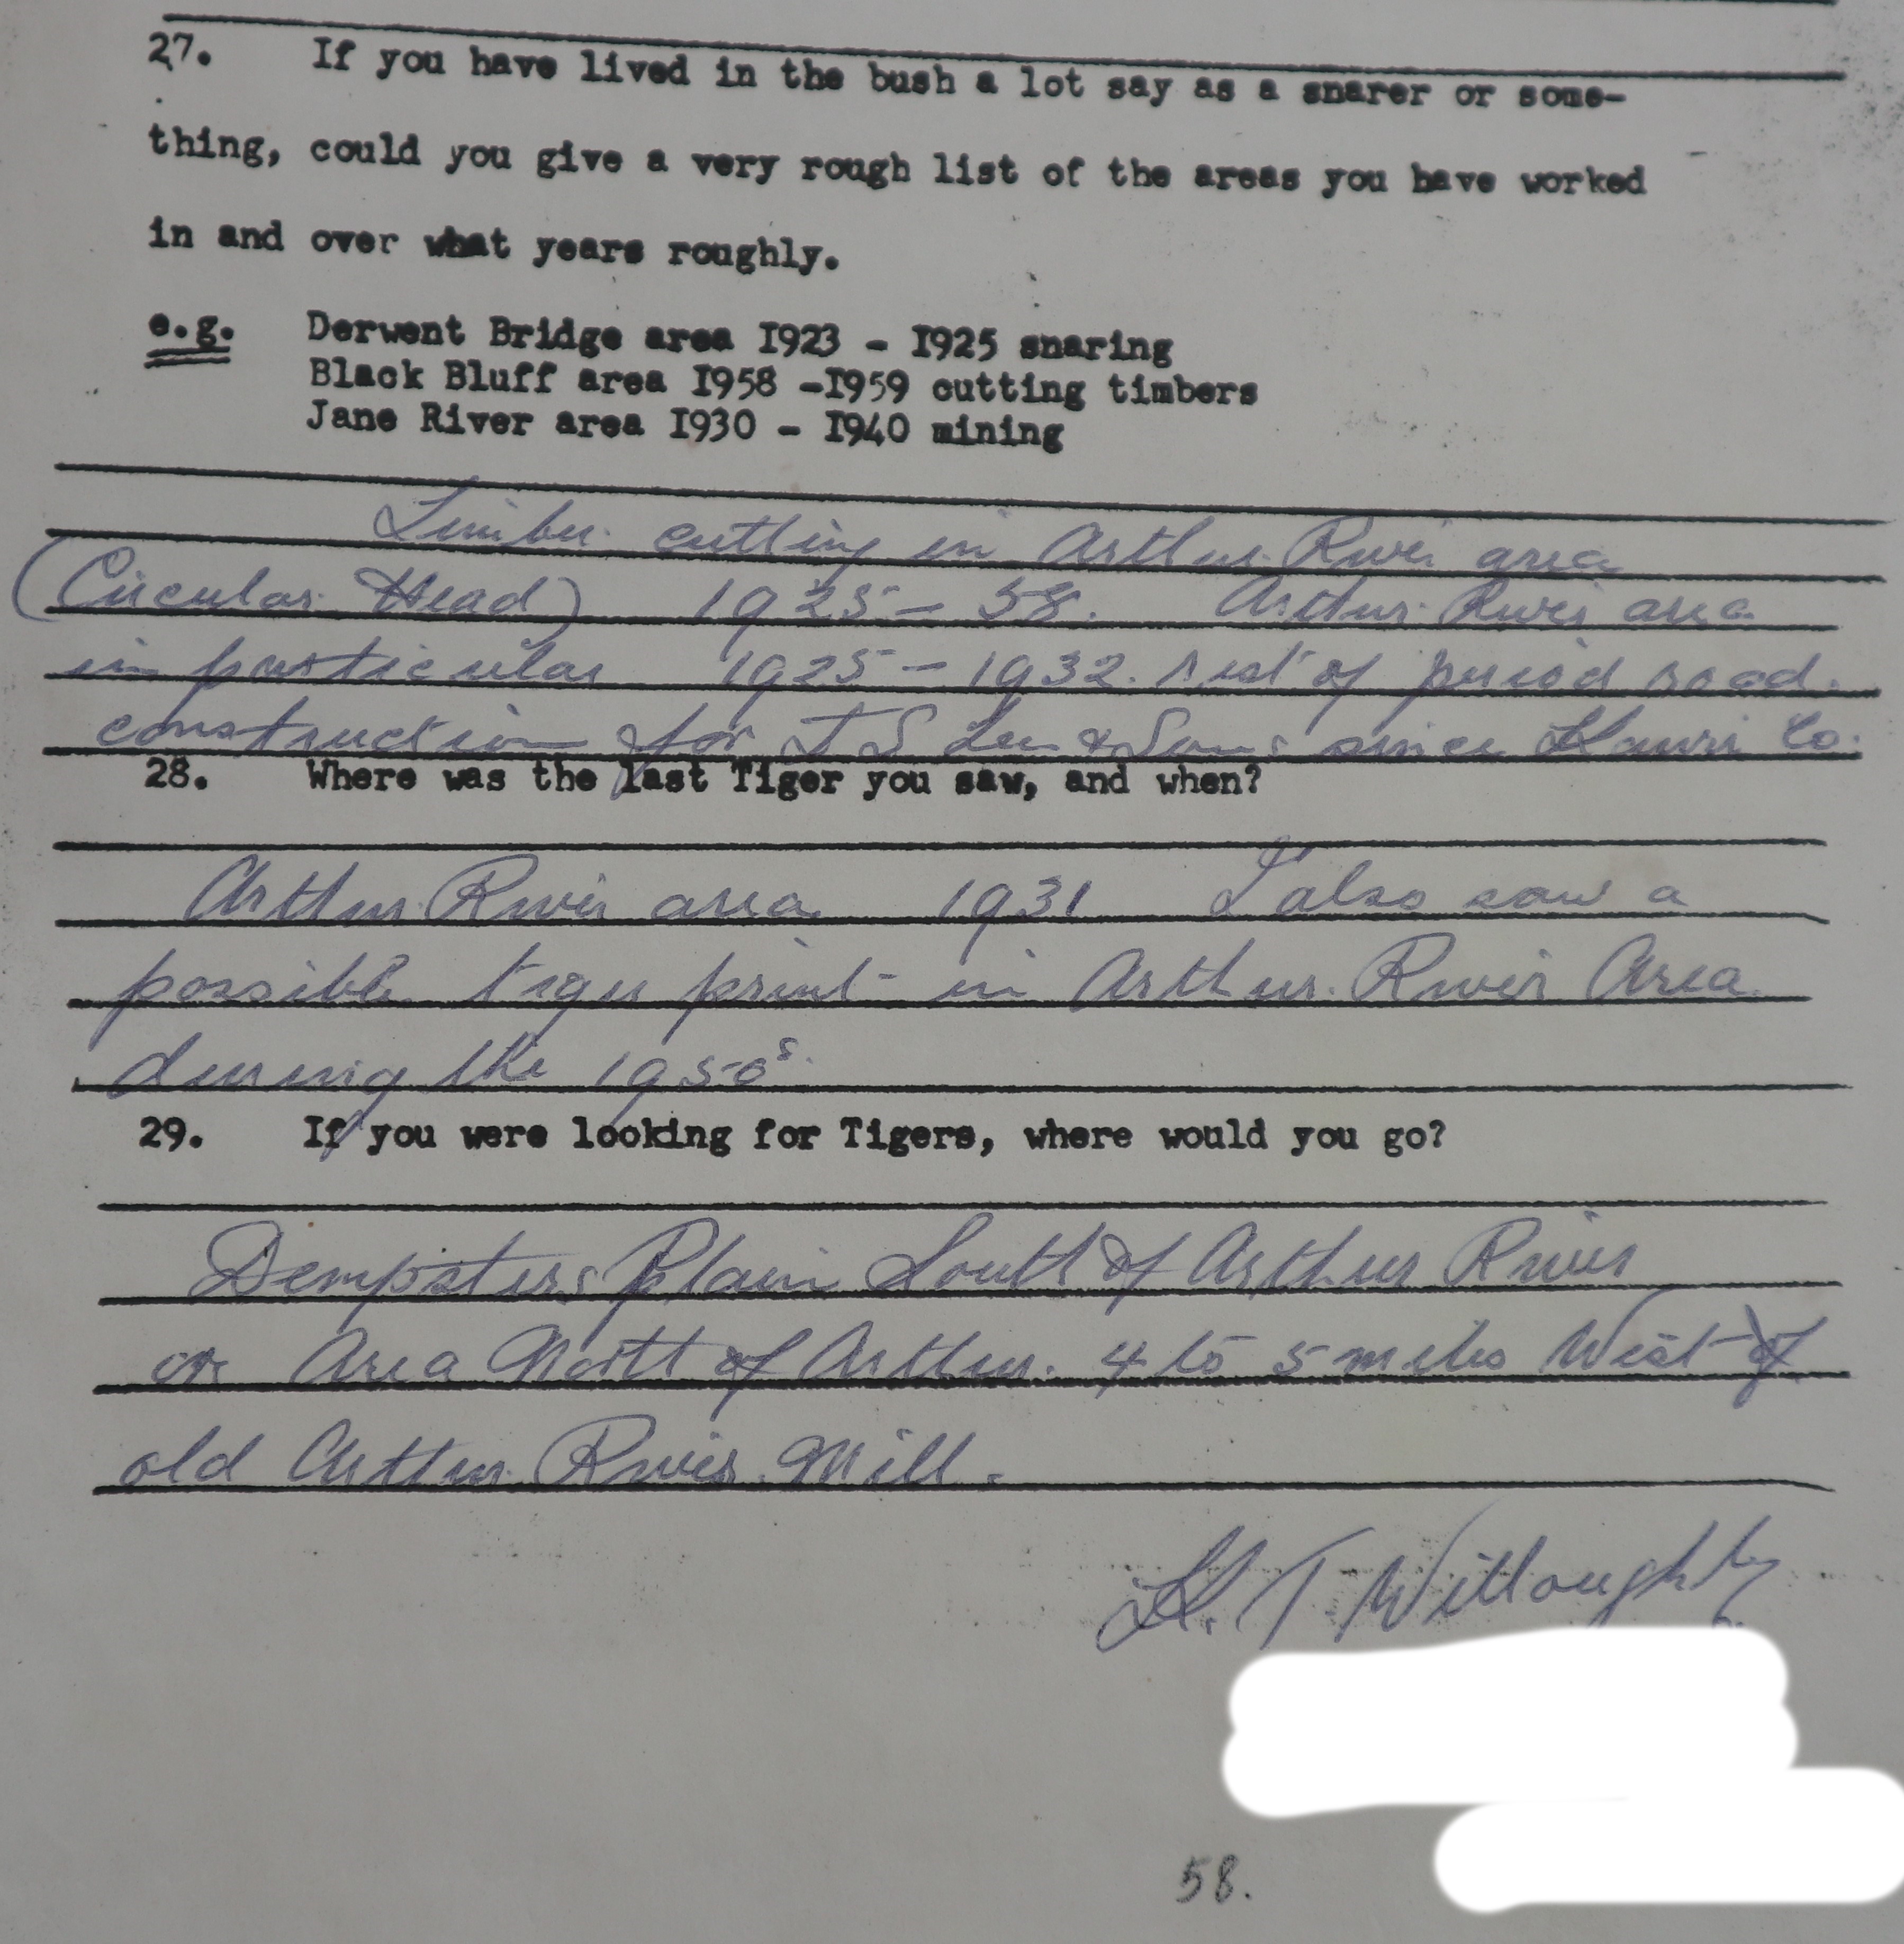 27. If you have lived in the bush a lot say as a snarer or some-
thing, could you give a very rough list of the areas you have worked
in and over what years roughly.
e.g. Derwent Bridge area I923 - I925 snaring
Black Bluff area I958 -I959 cutting timbers
Jane River area I930 - I940 mining
Timber cutting in Arthur River area
(Circular Head) 1925 - 58. Arthur River area
in particular 1925 - 1932. rest of period road
construction for J S Lee & Sons since Kauri Co.
28. Where was the last Tiger you saw, and when?
Arthur River area 1931 I also saw a
possible tiger print in Arthur River Area
during the 1950s.
29. If you were looking for Tigers, where would you go?
Dempsters Plain South of Arthur River
or Area North of Arthur. 4 to 5 miles West of
old Arthur River Mill.
T. Willoughby
58.